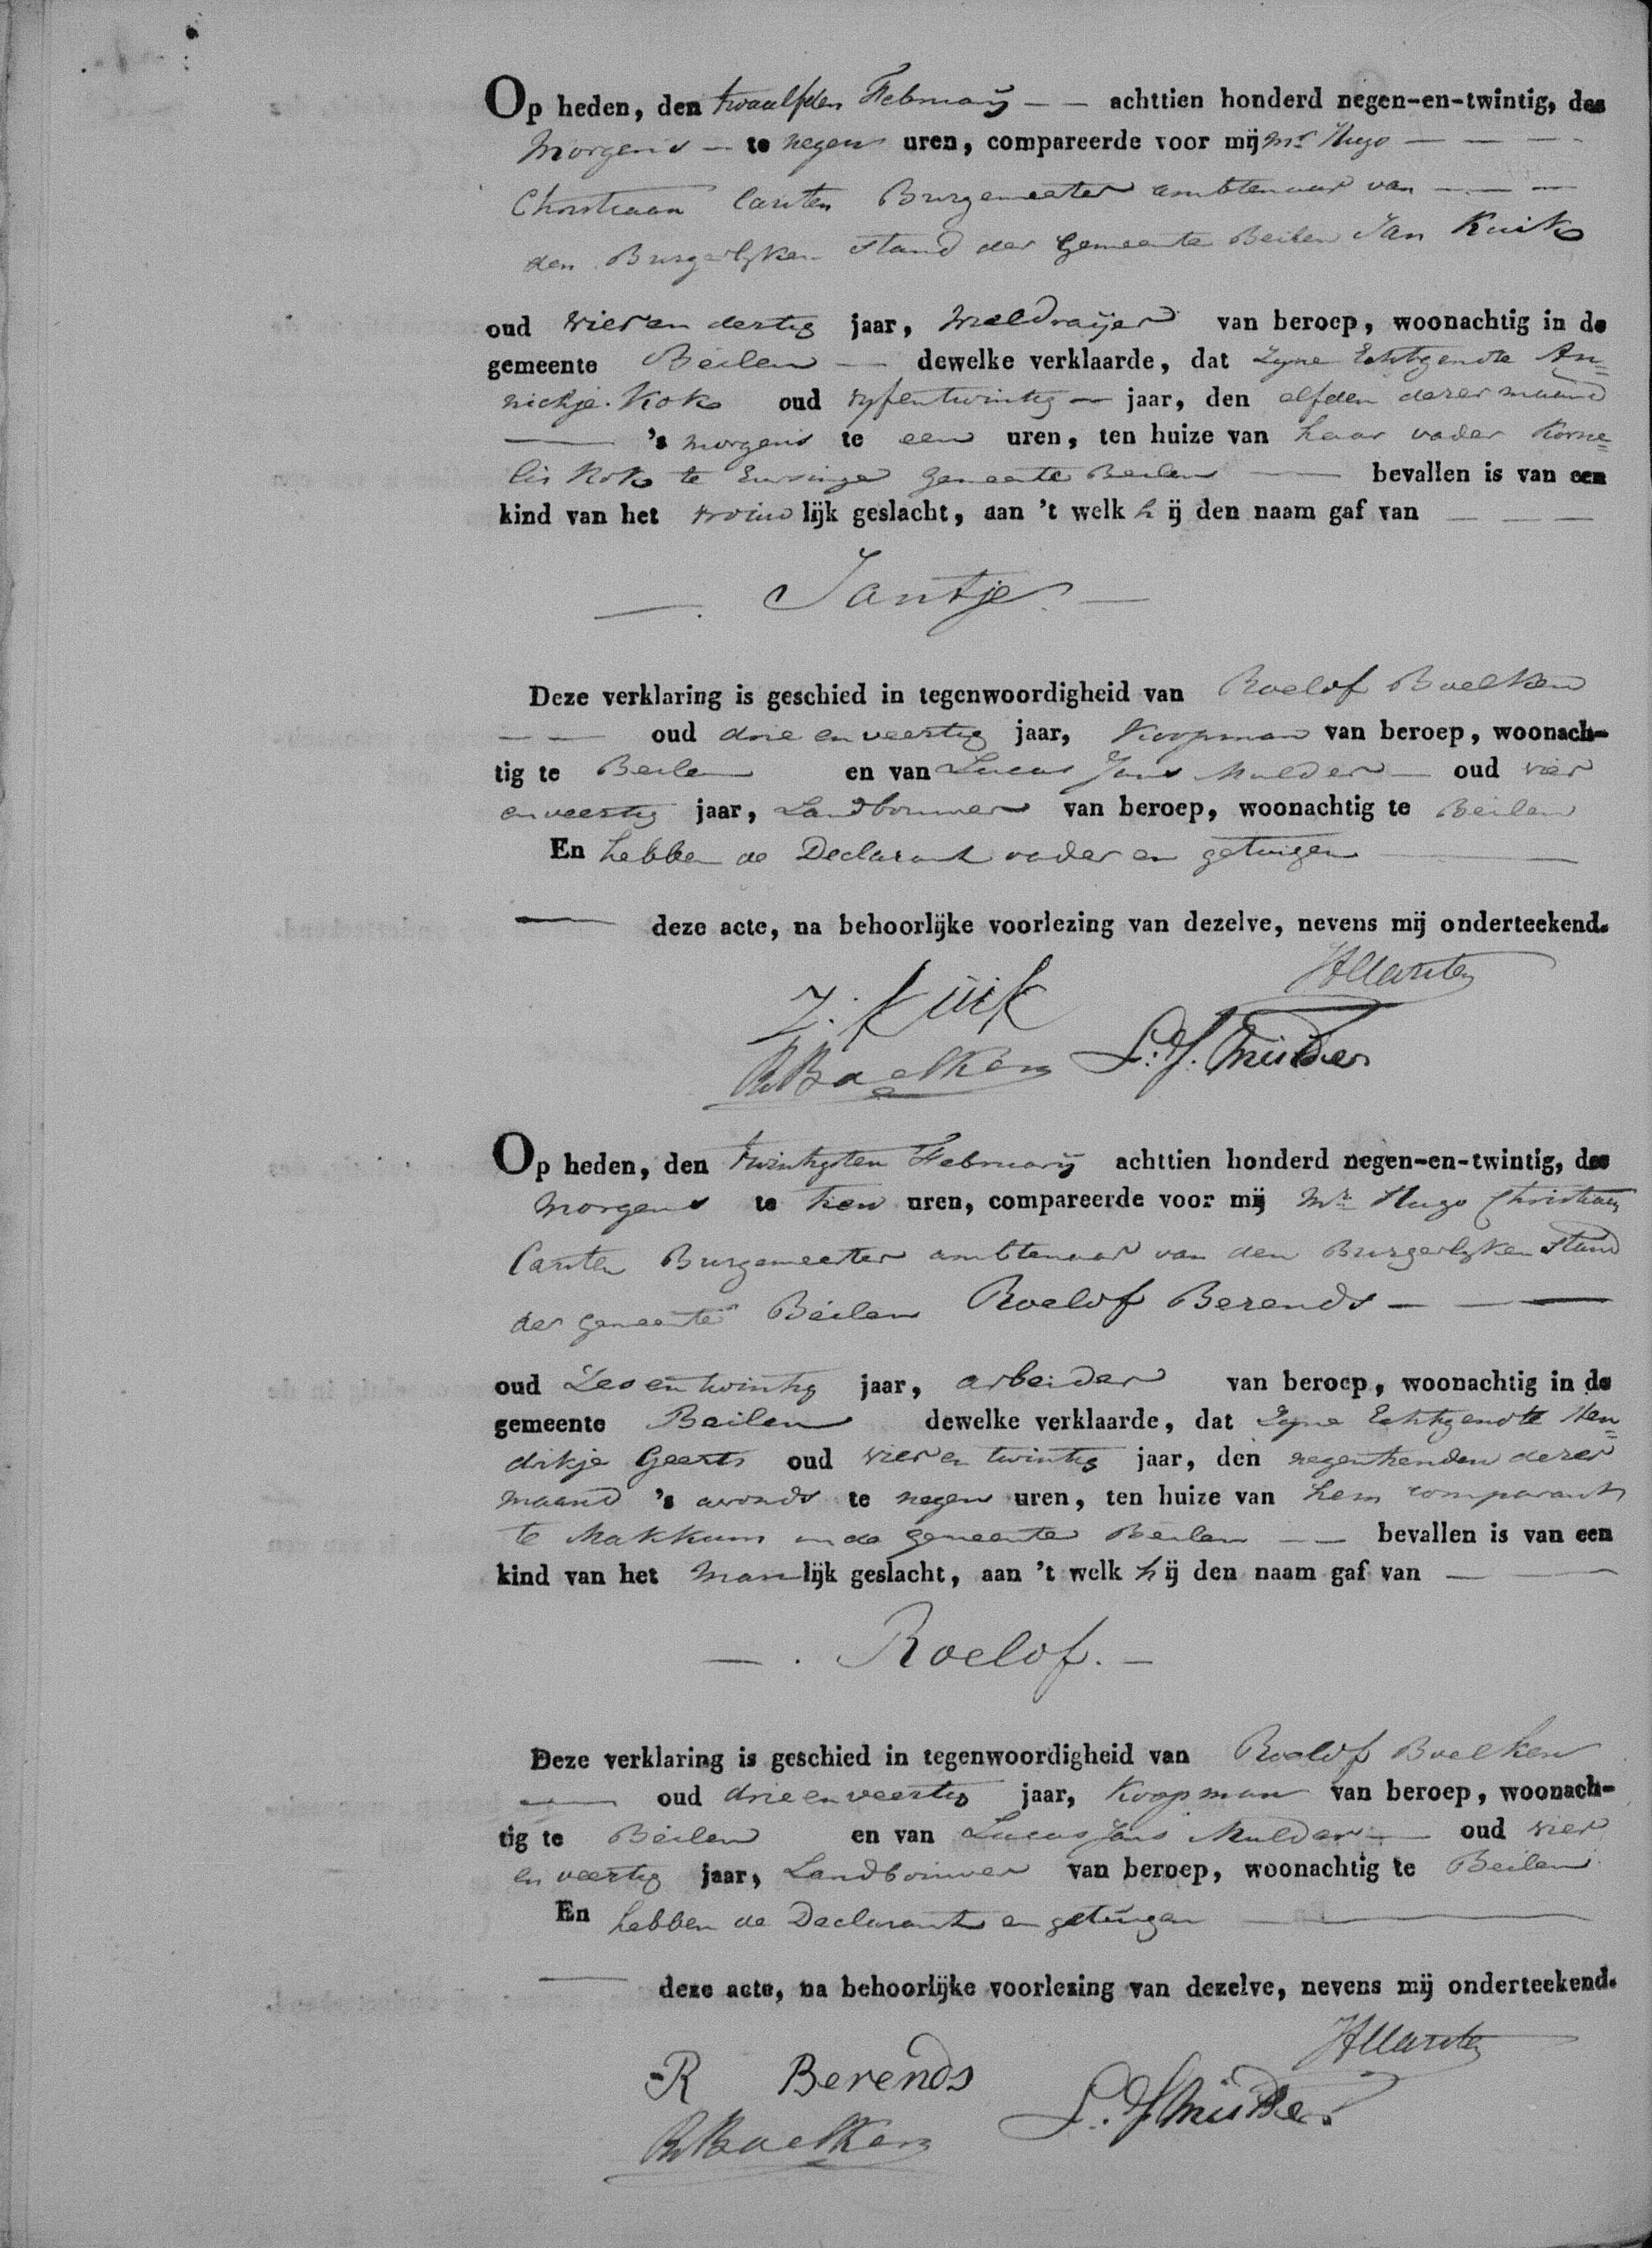 Op heden, den twaalfden February — — achttien honderd negen-en-twintig, des
Morgens — te negen uren, compareerde voor mij Mr Hugo — — —
Christiaan Carsten Burgemeester ambtenaar van — — —
den Burgerlyken Stand der Gemeente Beilen Jan Kuik
oud vier en dertig jaar, Wieldraijer van beroep, woonachtig in de
gemeente Beilen — dewelke verklaarde, dat Zyne Echtgenote An=
nichje Kok oud vyfentwintig — jaar, den elfden dezer maand
— 's morgens te een uren, ten huize van haar vader Korne=
lis Kok te Eursinge Gemeente Beilen — bevallen is van een
kind van het vrouwlijk geslacht, aan 't welk hij den naam gaf van — — —
—. Jantje. —
Deze verklaring is geschied in tegenwoordigheid van Roelof Boelken
— — oud drie en veertig jaar, Koopman van beroep, woonach-
tig te Beilen en van Lucas Jans Mulder — oud vier
en veertig jaar, Landbouwer van beroep, woonachtig te Beilen
En hebben de Declarant vader en getuigen —
— deze acte, na behoorlijke voorlezing van dezelve, nevens mij onderteekend.
HCCarsten
J. Kuik
R Boelken L. J. Mulder
Op heden, den twintigsten February achttien honderd negen-en-twintig, des
morgens te tien uren, compareerde voor mij Mr Hugo Christiaan
Carsten Burgemeester ambtenaar van den Burgerlyken Stand
der gemeente Beilen Roelof Berends — — —
oud Zes en twintig jaar, arbeider van beroep, woonachtig in de
gemeente Beilen dewelke verklaarde, dat Zyne Echtgenote Hen=
drikje Geerts oud vier en twintig jaar, den negentienden dezer
maand 's avonds te negen uren, ten huize van hem comparant
te Makkum in de gemeente Beilen — — bevallen is van een
kind van het manlijk geslacht, aan 't welk hij den naam gaf van — —
—. Roelof. —
Deze verklaring is geschied in tegenwoordigheid van Roelof Boelken
— oud drie en veertig jaar, Koopman van beroep, woonach-
tig te Beilen en van Lucas Jans Mulder — oud vier
en veertig jaar, Landbouwer van beroep, woonachtig te Beilen
En hebben de Declarant en getuigen —
— deze acte, na behoorlijke voorlezing van dezelve, nevens mij onderteekend.
HCCarsten
R Berends
R Boelken L. J Mulder